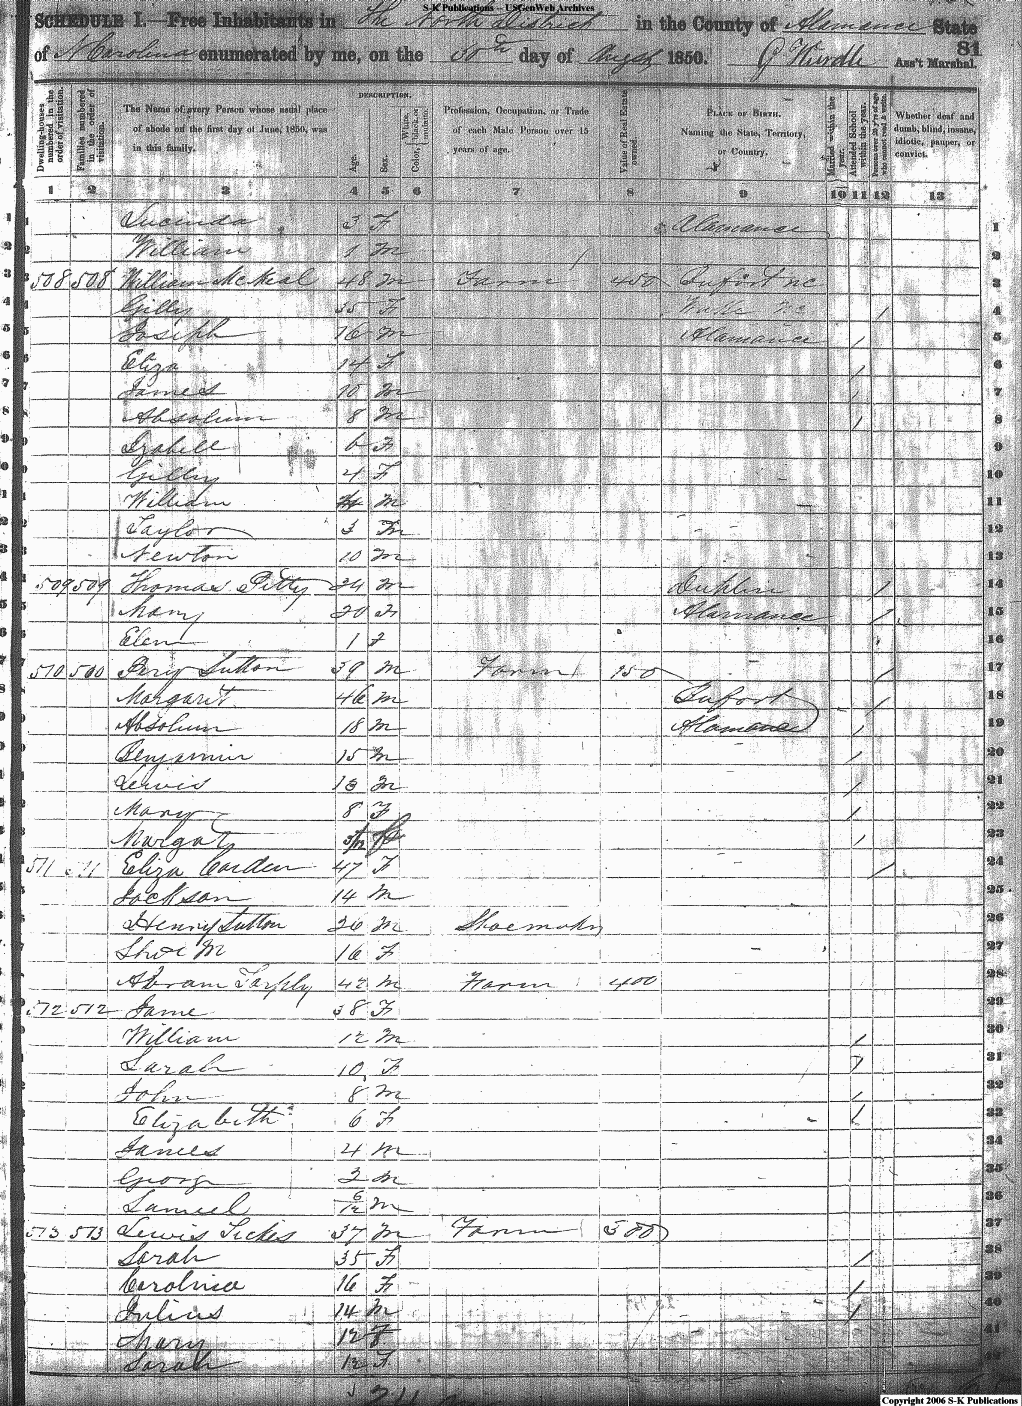 S-K Publications – USGenWeb Archives
SCHEDULE I.—Free Inhabitants in The North District in the County of Alamance State
of N Carolina enumerated by me, on the 30th day of August 1850. Ass't Marshal.
81
Dwelling-houses numbered in the order of visitation.
Families numbered in the order of visitation.
The Name of every Person whose usual place of abode on the first day of June, 1850, was in this family.
DESCRIPTION.
Age.
Sex.
Color, White, black, or mulatto.
Profession, Occupation, or Trade of each Male Person over 15 years of age.
Value of Real Estate owned.
PLACE OF BIRTH. Naming the State, Territory, or Country.
Married within the year.
Attended School within the year.
Persons over 20 y'rs of age who cannot read & write.
Whether deaf and dumb, blind, insane, idiotic, pauper, or convict.
1 2 3 4 5 6 7 8 9 10 11 12 13
1 Lucinda 3 F Alamance 1
2 William 1 M 2
3 508 508 William McNeal 48 M Farm 450 Bufort NC 3
4 Gilly 35 F Wake NC / 4
5 Joseph 16 M Alamance / 5
6 Eliza 14 F / 6
7 James 10 M / 7
8 Absolum 8 M / 8
9 Izabell 6 F 9
Gilley 4 F 10
William M 11
Taylor 3 M 12
Newton 10 M 13
509 509 Thomas Petty 24 M Dublin / 14
Mary 20 F Alamance / 15
Elen 1 F 16
510 500 Pery Sutton 39 M Farm 150 / 17
Margarit 46 M Bufort / 18
Absolum 18 M Alamance / 19
Benjamin 15 M / 20
Lewis 13 M / 21
Mary 8 F / 22
Margat F / 23
511 511 Eliza Carden 47 F / 24
Jackson 14 M 25
Henry Sutton 26 M Shoemakr 26
M 16 F 27
Abram Tarply 42 M Farm 400 28
512 512 Jame 38 F 29
William 12 M / 30
Sarah 10 F / 31
John 8 M / 32
Elizabeth 6 F / 33
James 4 M 34
George 2 M 35
Samuel 6/12 M 36
513 513 Lewis Tickes 37 M Farm 300 37
Sarah 35 F / 38
Carolina 16 F / 39
Julius 14 M / 40
Mary 12 F 41
Sarah 12 F 42
Copyright 2006 S-K Publications